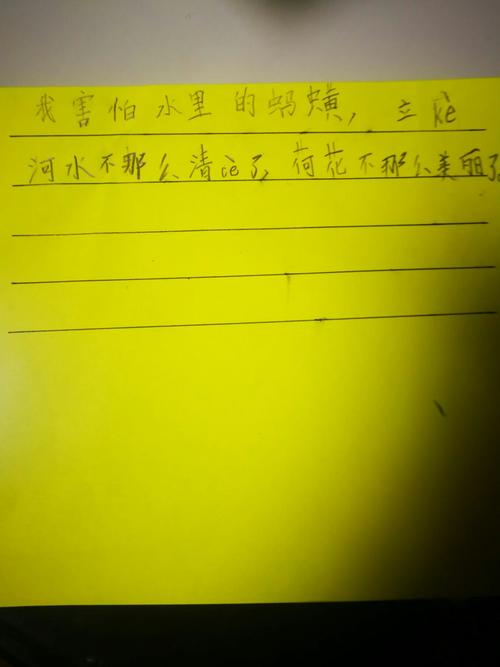 我害怕水里的蚂蟥，立kè
河水不那么清cè了，荷花不那么美丽了。